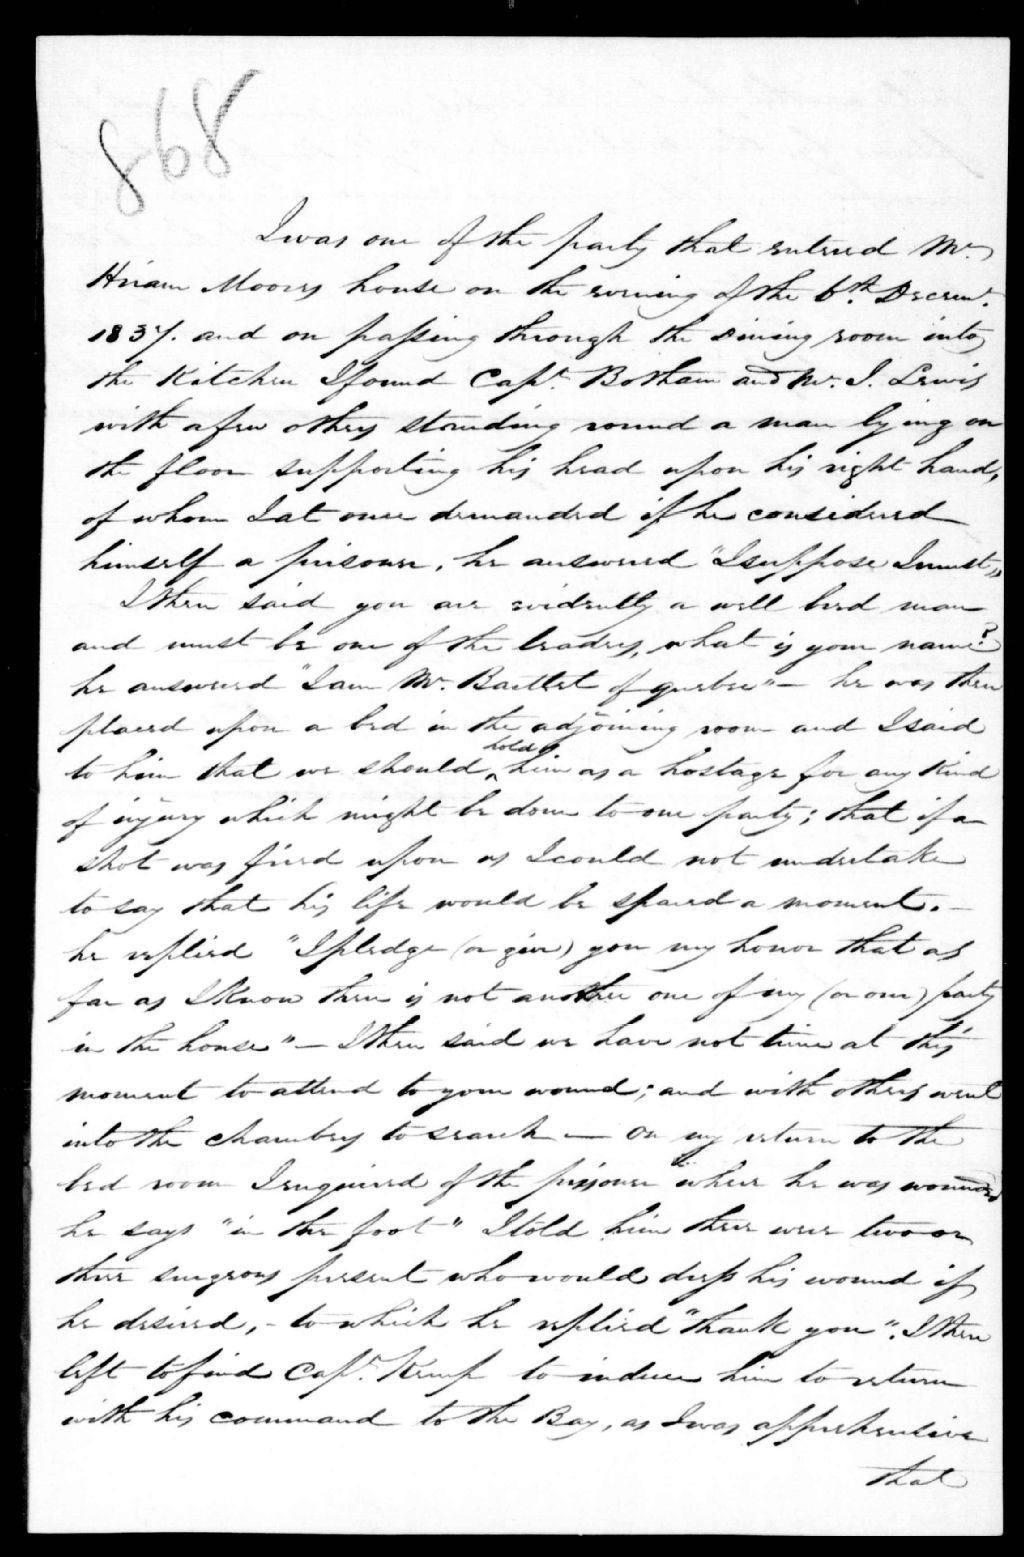 868
I was one of the party that entered Mr.
Hiram Moores house on the evening of the 6th Decem.
1837. and on passing through the Dining room into
the Kitchen I found Capt. Botham and Mr. J. Lewis
with a few others standing round a man lying on
the floor supporting his head upon his right hand,
of whom I at once demanded if he considered
himself a prisoner, he answered "I suppose I must,"
I then said you are evidently a well bred man
and must be one of the leaders, what is your name?
he answered "I am Mr. Baittet of Quebec" — he was then
placed upon a bed in the adjoining room and I said
to him that we should hold him as a hostage for any kind
of injury which might be done to our party; that if a
shot was fired upon us I could not undertake
to say that his life would be spared a moment. —
he replied "I pledge (or give) you my honor that as
far as I know there is not another one of my (or our) party
in the house" — I then said we have not time at this
moment to attend to your wound; and with others went
into the chambers to search — On my return to the
bed room I enquired of the prisoner where he was wounded
he says "in the foot" I told him there were two or
three surgeons present who would dress his wound if
he desired, - to which he replied "thank you". I then
left to find Capt. Kemp to induce him to return
with his command to the Bay, as I was apprehensive
that